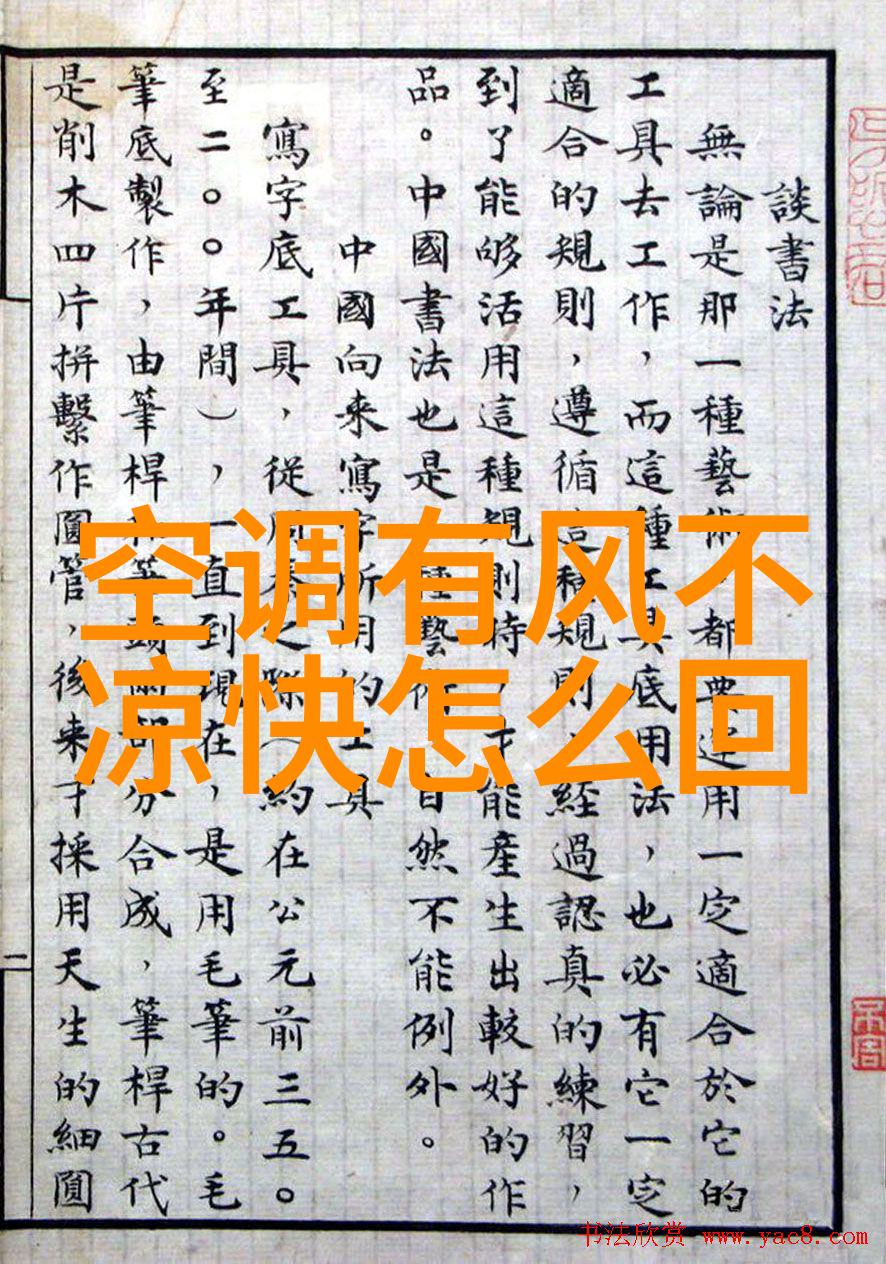 談書法
無論是那一種藝術,都要運用一定適合於它的
工具去工作,而這種工具底用法,也必有它一定
適合的規則,遵循這種規則,經過認真的練習,
到了能够活用這種規則時,才能產生出較好的作
品。中國書法也是一種藝術,自然不能例外。
中國向来寫字所用的工具
寫字底工具,從周秦之際(約在公元前三五〇
至二〇〇年間),一直到現在,是用毛筆的。毛
筆底製作,由筆桿和筆頭兩部分合成,筆桿古代
是削木四片拼繫作圓管,後来才採用天生的細圓
二
空调有风不
凉快怎么回
书法欣赏 www.yac8.com